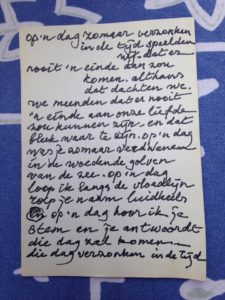 op 'n dag zomaar verzonken
in de tijd speelden
wij dat er
nooit 'n einde aan zou
komen. althans
dat dachten we.
we meenden dat er nooit
'n einde aan onze liefde
zou kunnen zijn. en dat
bleek waar te zijn. op 'n dag
was je zomaar verdwenen
in de woedende golven
van de zee. op 'n dag
loop ik langs de vloedlijn
roep je naam luidkeels
en op 'n dag hoor ik je
stem en je antwoordt
die dag zal komen
die dag verzonken in de tijd